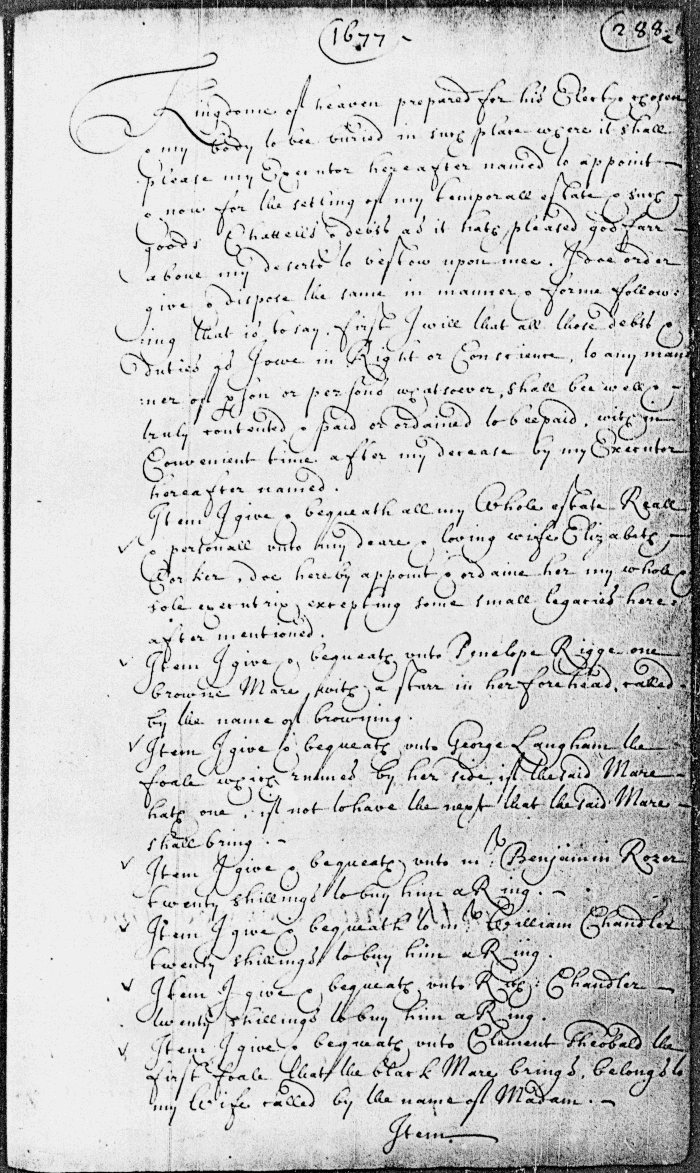 1677
288
Kingdome of heaven prepared for his Elect & chosen
& my body to bee buried in such place where it shall
please my Executor hereafter named to appoint —
& now for the setling of my temporall estate & such —
goods Chattells & debts as it hath pleased god farr —
above my deserts to bestow upon mee. I doe order
give & dispose the same in manner & forme follow:
:ing that is to say. first I will that all those debts &
duties as I owe in Right or Conscience, to any man:
:ner of pson or persons whatsoever, shall bee well & —
truly contented & paid or ordained to bee paid, within
Convenient time after my decease by my Executor
hereafter named.
Item I give & bequeath all my Whole estate Reall
& personall unto my deare & loving wife Elizabeth —
doe hereby appoint & ordaine her my whole &
sole executrix, excepting some small legacies here:
after mentioned.
Item I give & bequeath unto Penelope Rigge one
browne Mare, with a starr in her forehead, called
by the name of browning.
Item I give & bequeath unto George Langham the
foale which runnes by her side, if the said Mare —
hath one, if not to have the next that the said Mare —
shall bring. —
Item I give & bequeath unto mr. Benjamin Rozer
twenty shillings to buy him a Ring. —
Item I give & bequeath to mr. William Chandler
twenty shillings to buy him a Ring.
Item I give & bequeath unto Rich: Chandler —
twenty shillings to buy him a Ring.
Item I give & bequeath unto Clement Theobald the
first foale that the black Mare brings, belongs to
my Wife called by the name of Madam. —
Item